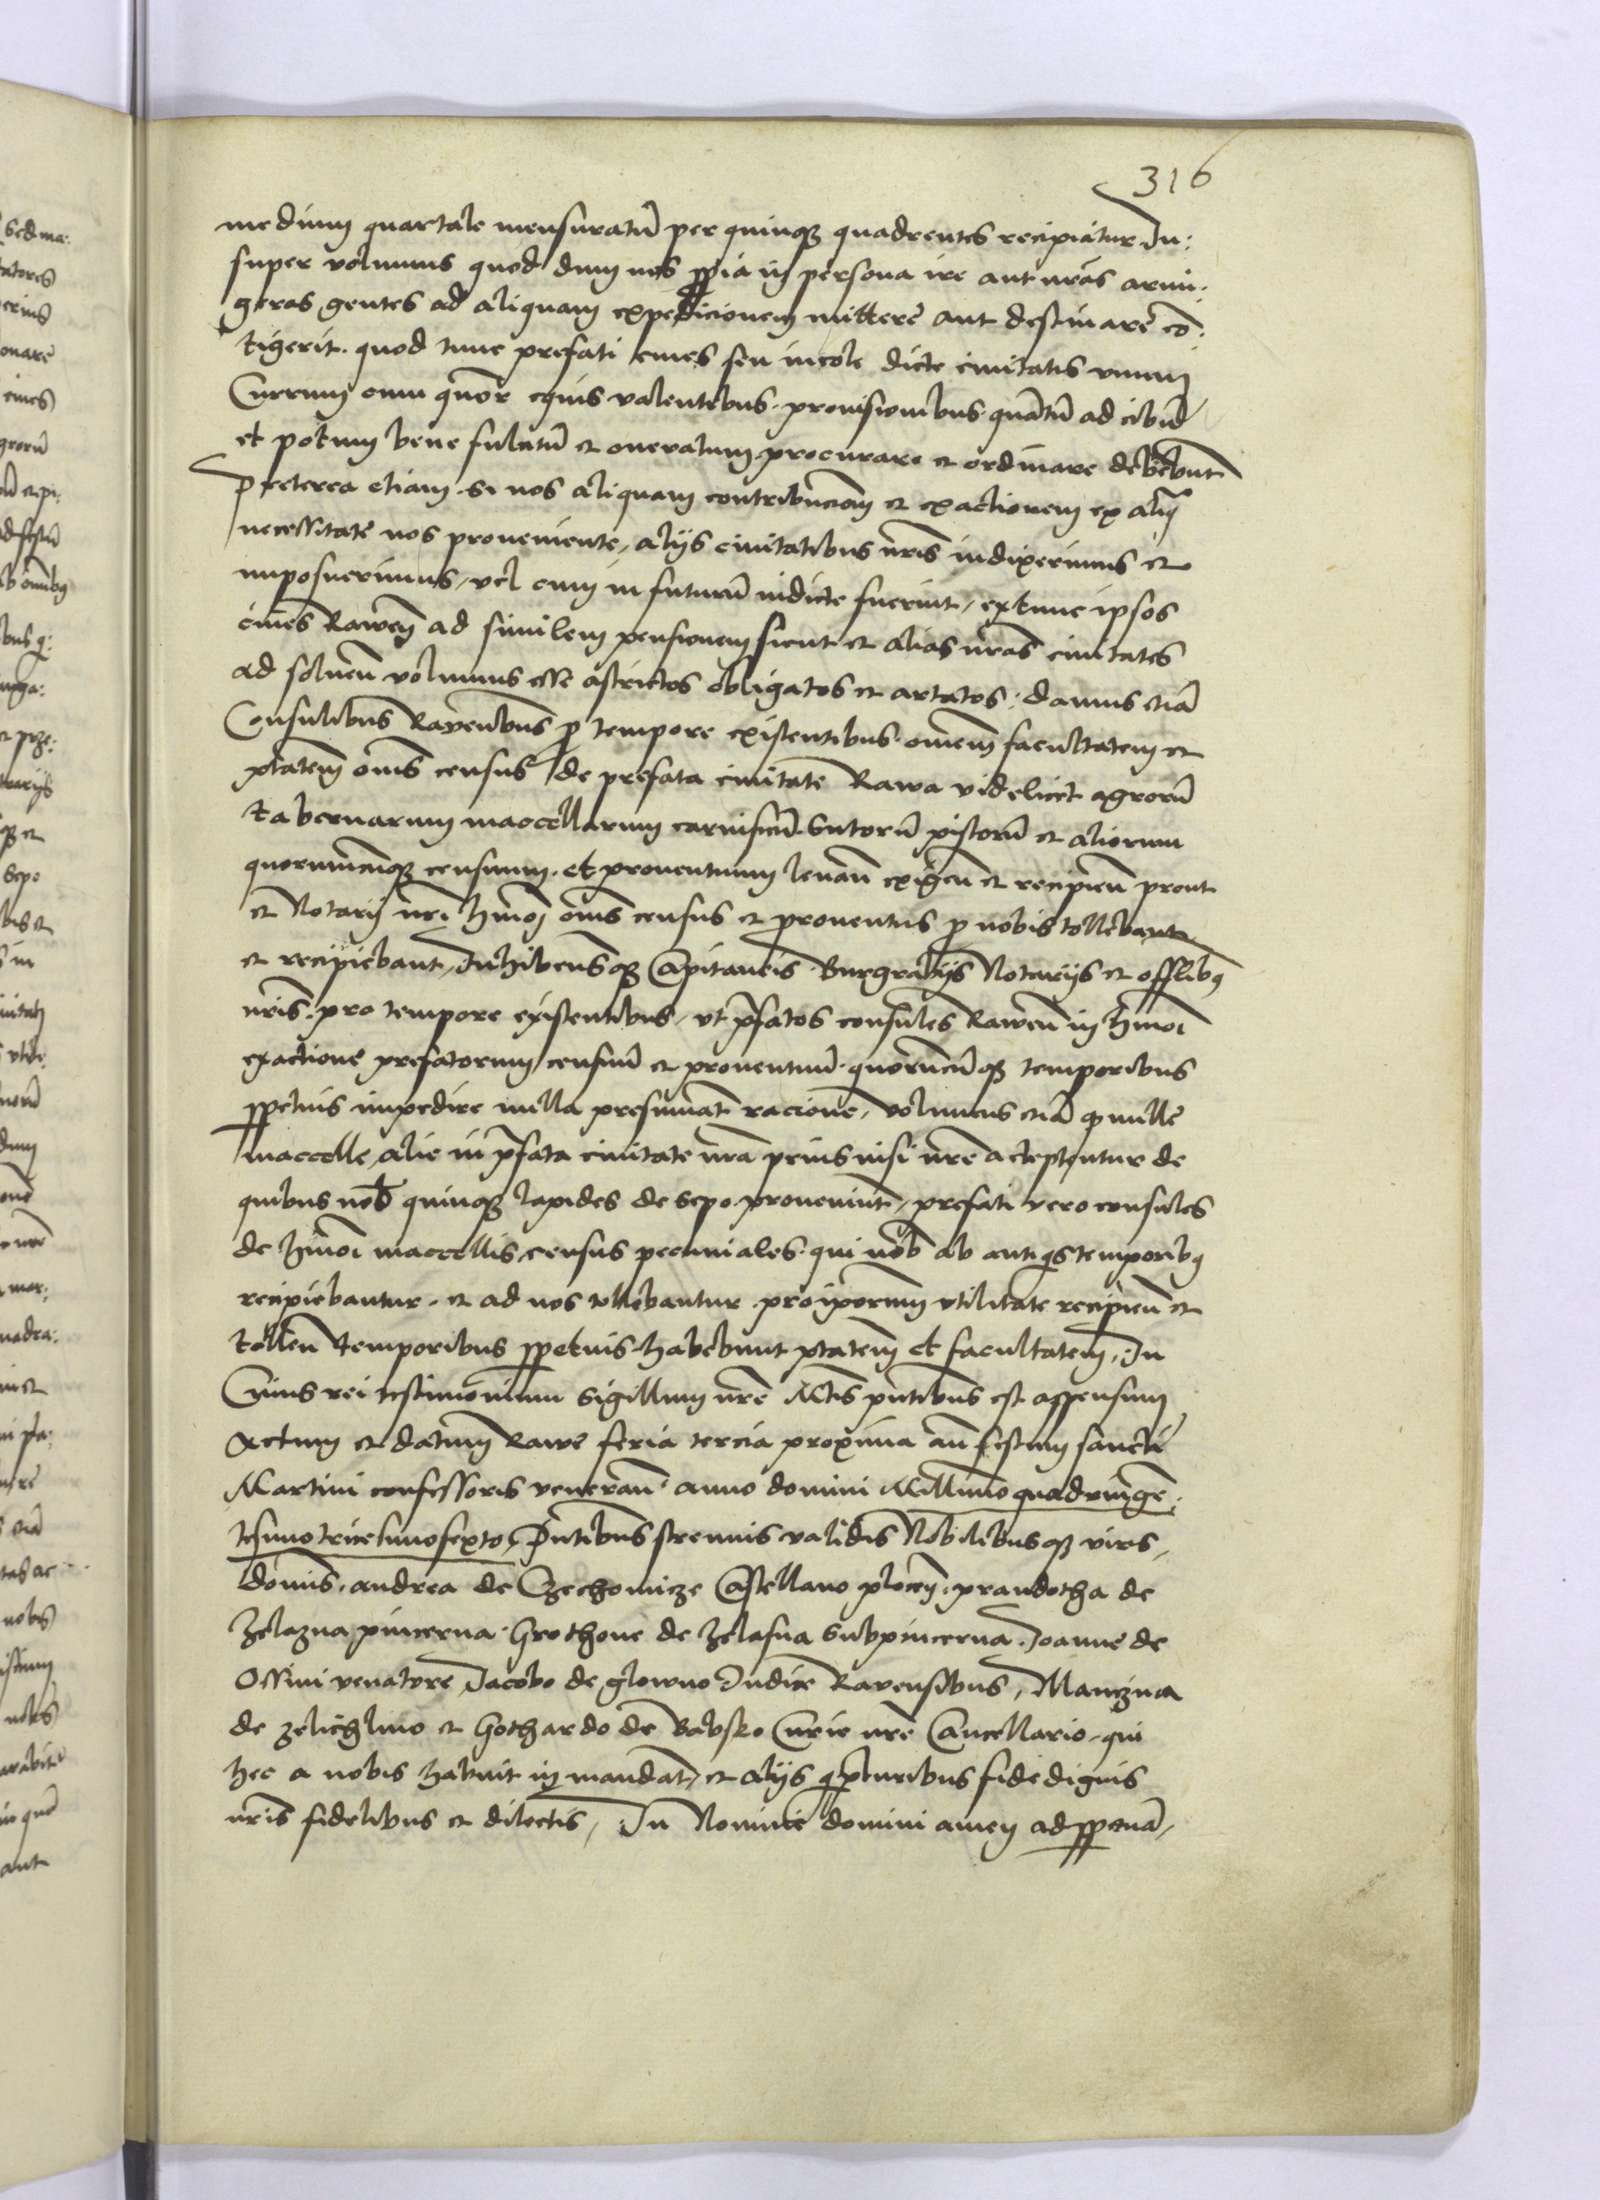 316
medium quartale mensuratũ per quinqȝ quadrentes recipiatur. In:
super volumus quod dum nos ꝓpria in persona ire aut nr̃as armi:
geras gentes ad aliquam expedicionem mittere aut destinare cõ:
tigerit. quod tunc prefati ciues seu incole dicte ciuitatis vnum
Currum cum quor̃ equis valentibus. prouisionibus. quãtũ ad cibũ
et potum bene fulcitũ et oneratum procurare et ordinare debebunt
Preterea etiam si nos aliquam contribucionẽ et exactionem ex aliq̃
necessitate nos proueniente, alijs ciuitatibus nr̃is indixerimus et
imposuerimus, vel cum in futurũ indicte fuerint, extunc ipsos
ciues Rawen̄ ad similem pensionem sicut et alias nr̃as ciuitates
ad soluen̄ volumus esse astrictos obligatos et artatos: damus eciã
Consulibus Rauen̄bus ꝓ tempore existentibus. omnem facultatem et
ptãtem om̃s census de prefata ciuitate Rawa videlicet agrorũ
tabernarum maccellarum carnificũ. Sutorũ pistorũ et aliorum
quorumcũqȝ censuum. et prouentuum leuan̄ exigen̄ et recipien̄ prout
et Notarij nr̃i hmõi om̃s census et prouentus ꝓ nobis tollebant
et recipiebant, Inhibentesqȝ Capitaneis Burgrabijs Notarijs et offl̃ibꝫ
nr̃is. pro tempore existentibus, vt p̃fatos consules Rawen̄ in hmõi
exactione prefatorum censuũ et prouentuũ. quorũcũqȝ temporibus
ꝑpetuis impedire nulla presumãt racione, volumus eciã ꝙ nulle
maccelle alie in p̃fata ciuitate nr̃a prius nisi nr̃e acceptentur de
quibus nob̃ quinqȝ lapides de sepo proueniunt, prefati vero consules
de hmõi maccellis census pecuniales. qui nob̃ ab antiq̃s temporibꝫ
recipiebantur. et ad nos tollebantur pro ip̃orum vtilitate recipien̄ et
tollen̄ temporibus ꝑpetuis habebunt ptãtem et facultatem, In
Cuius rei testimonium Sigillum nr̃e Mt̃is pñtibus est appensum
Actum et datum Rawe feria tercia proxima an̄ festum sancti
Martini confessoris veneran̄. anno domini Millmõ quadringẽ:
tesimo tricesimosexto, Pñtibus strenuis validis Nobilibusqȝ viris,
dom̃is. andrea de Czechomicze Castellano plocen̄. prandotha de
Zelazna pincerna. Grothone de Zelasna Subpincerna. Joanne de
Ossini venatore, Jacobo de glowno Iudice Rauensibus, Manczna
de zelichlino et Gothardo de Babsko Curie nr̃e Cancellario. qui
hec a nobis habuit in mandat̃, et alijs qp̃luribus fidedignis
nr̃is fidelibus et dilectis, In Nomine domini amen ad ꝑpetuã,